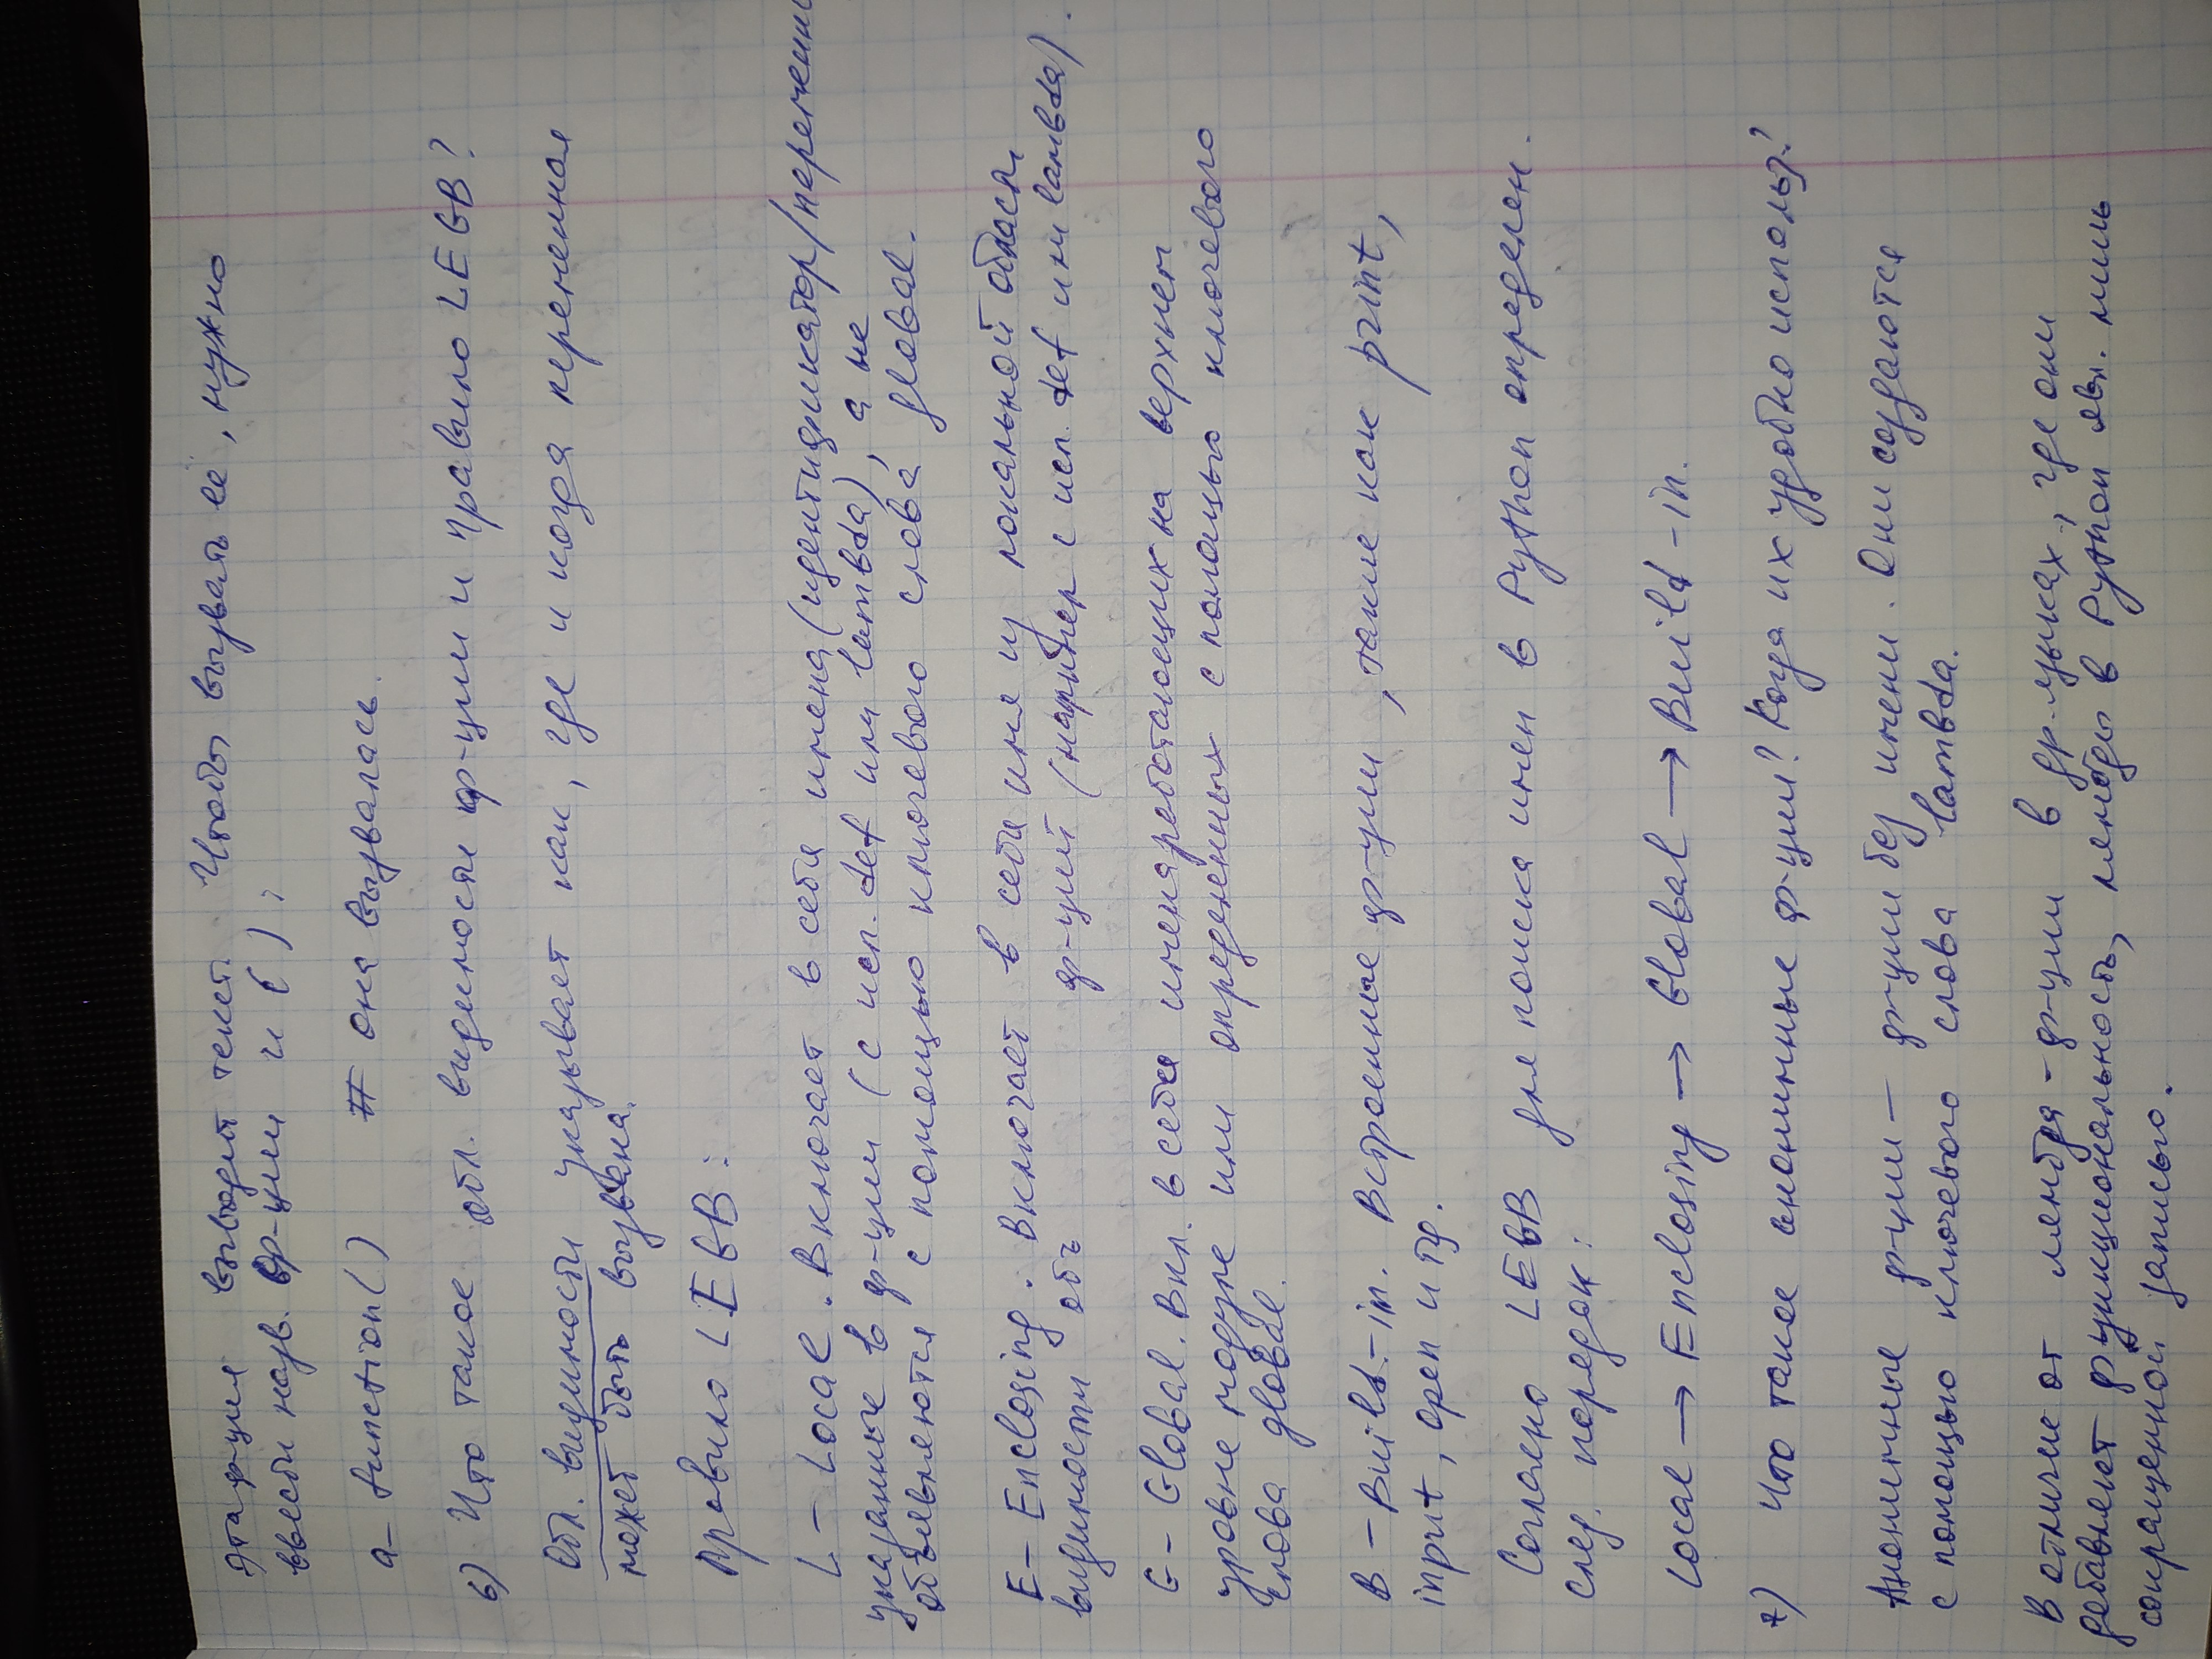 эта ф-ция выводит текст. Чтобы вызвать её, нужно
ввести назв. ф-ции и ( ) :
a_function() # она вызвалась.
6) Что такое обл. видимости ф-ции и правило LEGB?
Обл. видимости указывает как, где и когда переменная
может быть вызвана.
Правило LEGB:
L - Local. Включает в себя имена (идентификатор/переменн
указанные в ф-ции (с исп. def или lambda), а не
объявляются с помощью ключевого слова global.
E - Enclosing. Включает в себя имя из локальной области
видимости объ ф-ций (например с исп. def или lambda).
G - Global. Вкл. в себя имена работающих на верхнем
уровне модуле или определенных с помощью ключевого
слова global.
B - Build-in. Встроенные ф-ции, такие как print,
input, open и тд.
Согласно LEGB для поиска имен в Python определен.
след. порядок:
Local → Enclosing → Global → Build-in.
7) Что такое анонимные ф-ции? Когда их удобно использ?
Анонимные ф-ции - ф-ции без имени. Они создаются
с помощью ключевого слова lambda.
В отличие от лямбда-ф-ции в др. языках, где они
добавляют функциональность, лямбды в Python явл. лишь
сокращенной записью.